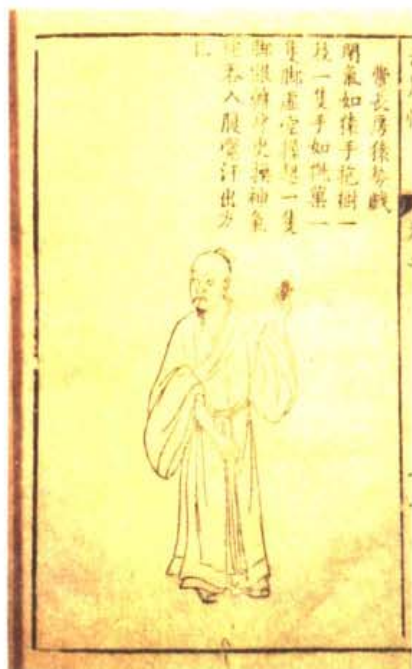 費長房猿勢戲
閉氣如猿手抱樹一
枝一隻手如撚菓一
隻脚虛空握起一隻
脚跟轉身更換神氣
連吞入腹覺汗出方
已